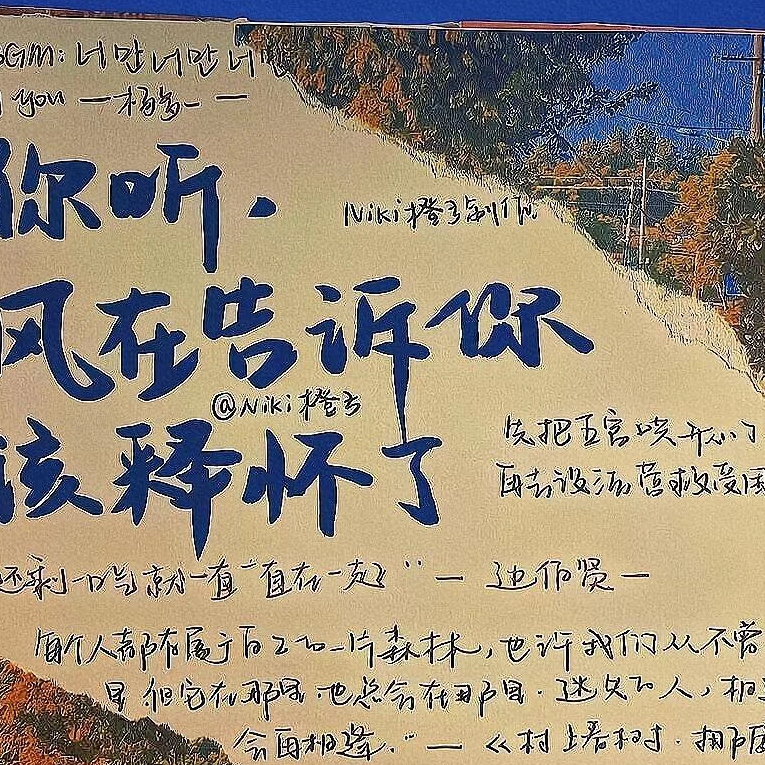 BGM:너만너만너만
you — 杨多一 —
你听.
Niki橙子制作
风在告诉你
@Niki橙子
该释怀了
先把五官哭开心了
再去设法营救受困
还剩一口气就一直“直在一起” — 边伯贤 —
“每个人都有属于自己的一片森林,也许我们从不曾
是 但它在那里.也总会在那里.迷失的人,相逢
会再相逢.” — 《村上春树.挪威